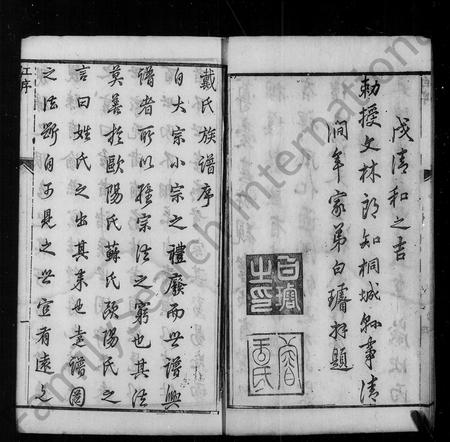 戊清和之吉
勅授文林郎知桐城縣事清
澗年家弟白瓊拜題
戴氏族譜序
自大宗小宗之禮廢而世譜興
譜者所以捄宗法之窮也其法
莫善於歐陽氏蘇氏歐陽氏之
言曰姓氏之出其來也遠譜圖
之法斷自可見之世宜有遠之
江序
FamilySearch International